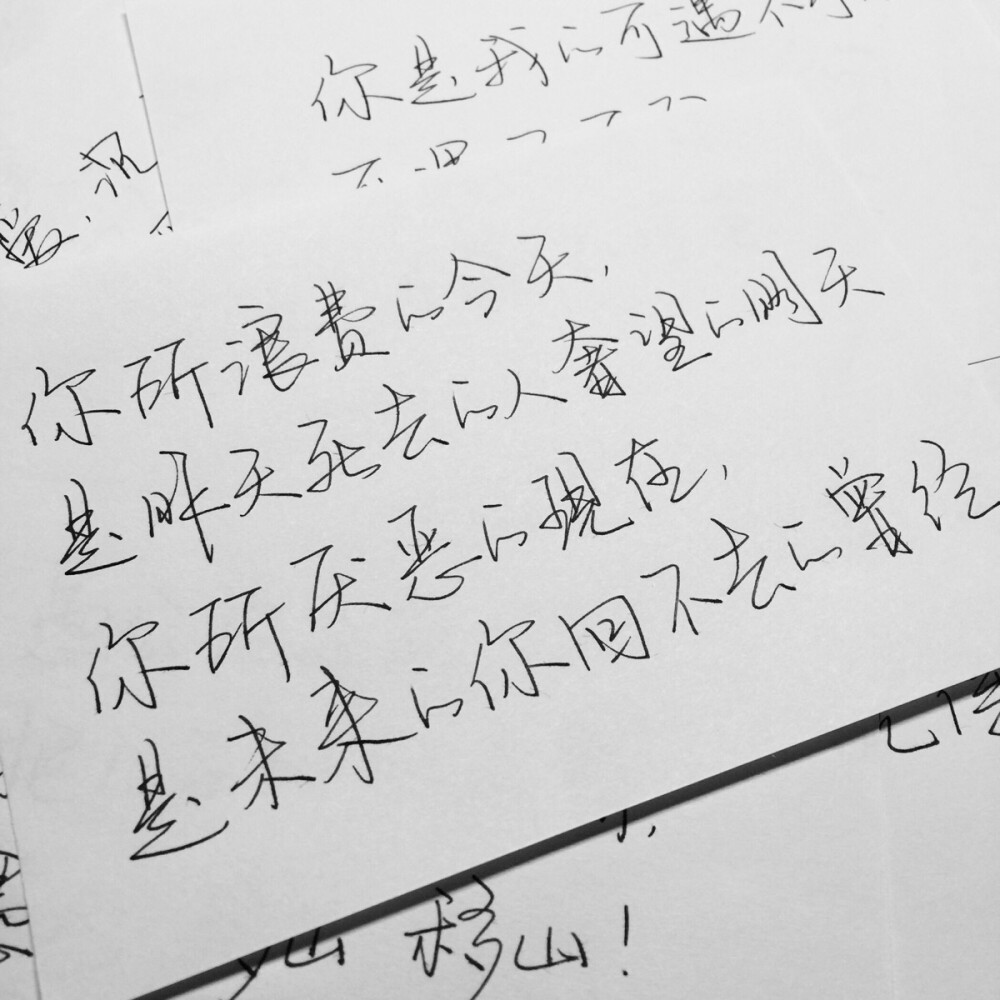 你是我的可遇不可
你所浪费的今天,
是昨天死去的人奢望的明天
你所厌恶的现在,
是未来的你回不去的曾经
移山!